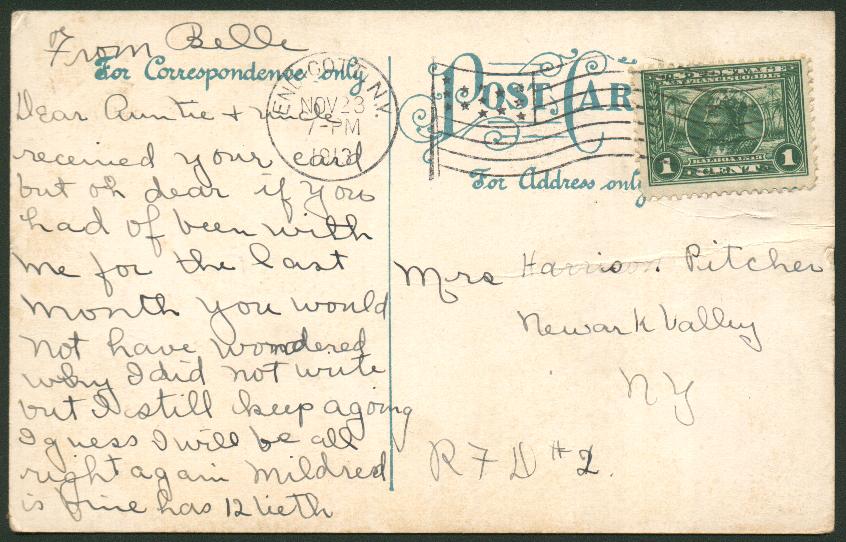 From Belle
For Correspondence only
Dear Auntie + uncle
received your card
but oh dear if you
had of been with
me for the last
month you would
not have wondered
why I did not write
but I still keep agoing
I guess I will be all
right again Mildred
is fine has 12 teeth
ENDICOTT, N.Y.
NOV 23
7-PM
1913
POST CAR
For Address only
SAN FRANCISCO 1915
BALBOA 1513
1 CENT 1
Mrs Harrison Pitcher
Newark Valley
NY
R F D # 2.